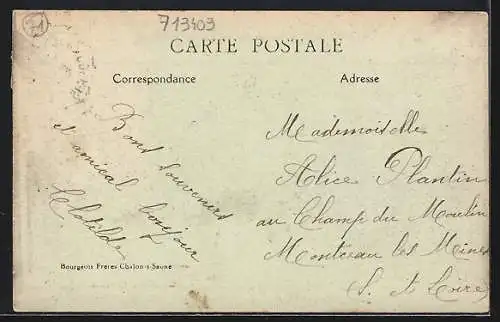 71
713403
CARTE POSTALE
Correspondance
Adresse
Bons souvenirs
et amical bonjour
Clotilde
Mademoiselle
Alice Plantin
au Champ du Moulin
Montceau les Mines
S. et Loire
Bourgeois Frères Chalon-s-Saône